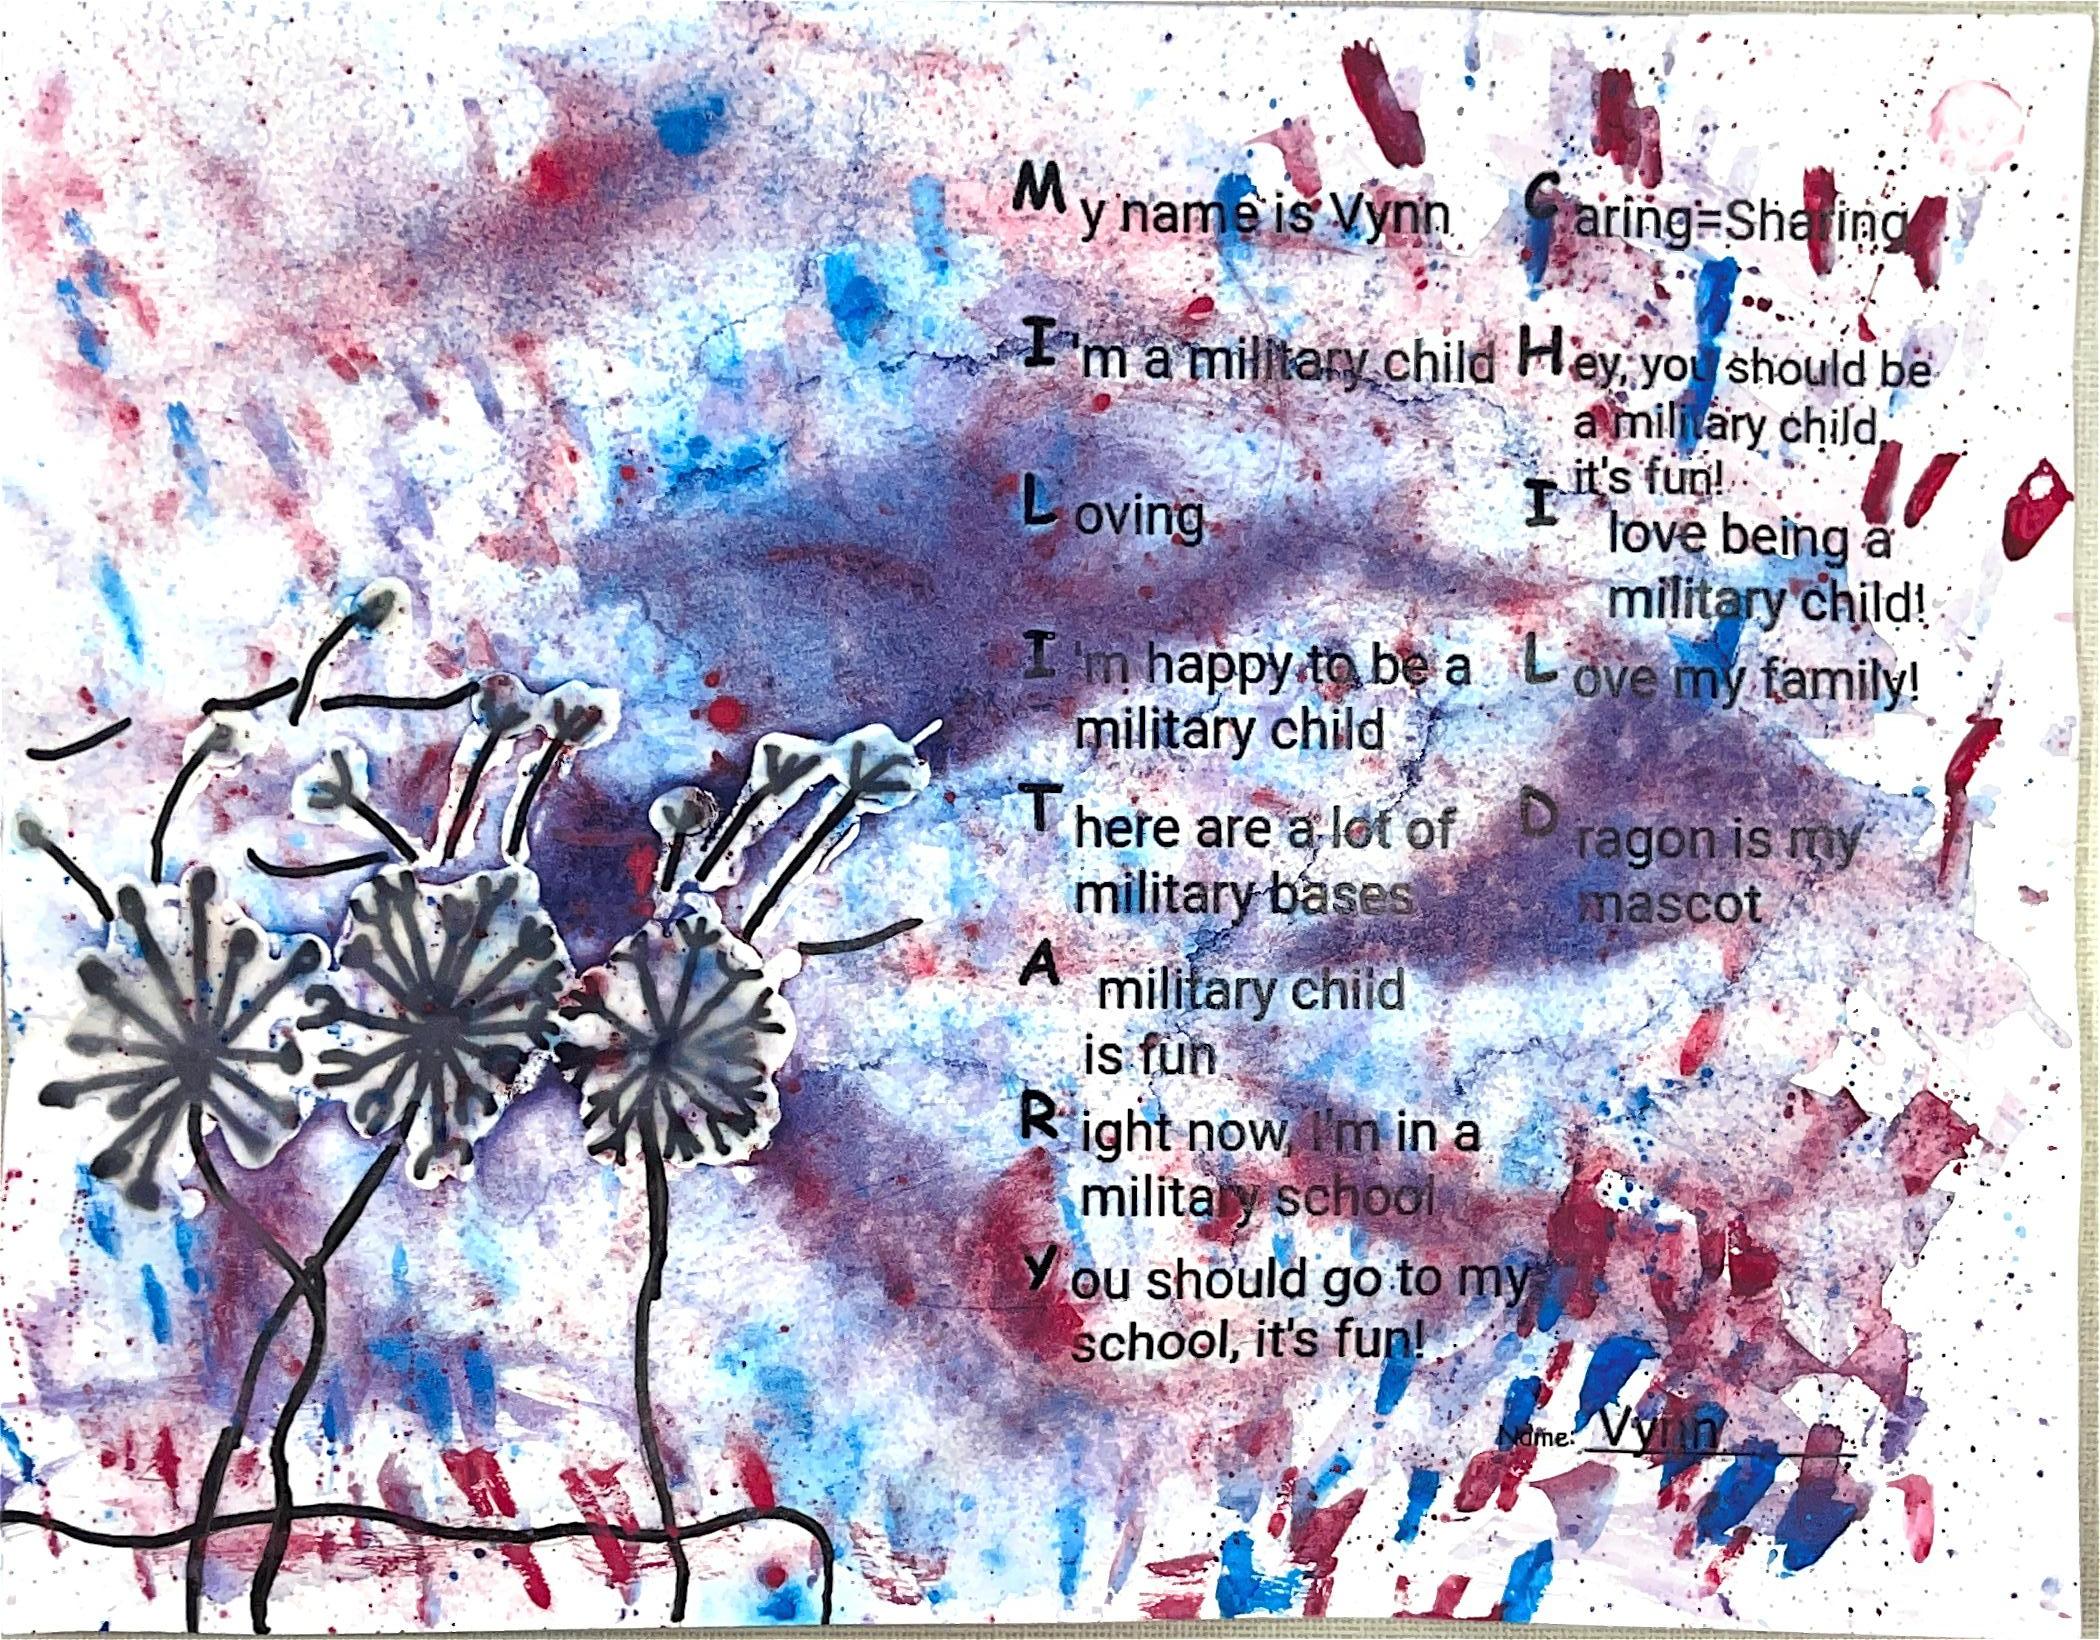 My name is Vynn
I'm a military child
Loving
I'm happy to be a
military child
There are a lot of
military bases
A military child
is fun
Right now, I'm in a
military school
You should go to my
school, it's fun!
Caring=Sharing
Hey, you should be
a military child,
it's fun!
I love being a
military child!
Love my family!
Dragon is my
mascot
Name: Vynn